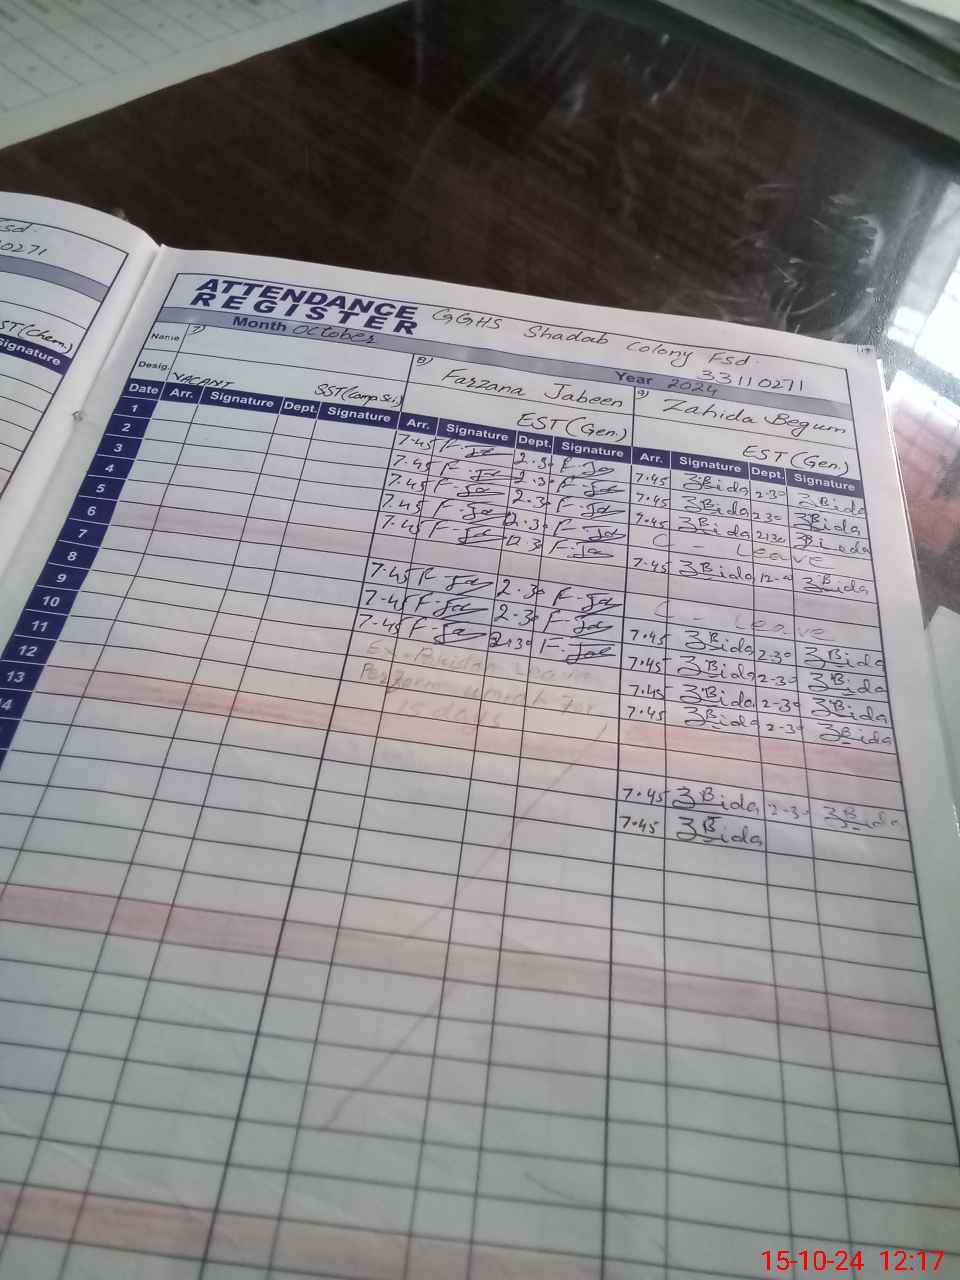 Fsd.
0271
ST(Chem.)
Signature
ATTENDANCE
REGISTER
GGHS Shadab Colony Fsd.
33110271
Month October
Year 2024
Name
7)
8) Farzana Jabeen
9) Zahida Begum
Desig.
VACANT
SST(Comp Sci.)
EST(Gen.)
EST(Gen.)
Date Arr. Signature Dept. Signature Arr. Signature Dept. Signature Arr. Signature Dept. Signature
1 7.45 F.Ja 2.30 F.Ja 7.45 ZBida 2.30 ZBida
2 7.45 F.Ja 2.30 F.Ja 7.45 ZBida 2.30 ZBida
3 7.45 F.Ja 2.30 F.Ja 7.45 ZBida 2.30 ZBida
4 7.45 F.Ja 2.30 F.Ja C - Leave
5 7.45 F.Ja 12.30 F.Ja 7.45 ZBida ZBida
6
7 7.45 F.Ja 2.30 F.Ja C - Leave
8 7.45 F.Ja 2.30 F.Ja 7.45 ZBida 2.30 ZBida
9 7.45 F.Ja 2.30 F.Ja 7.45 ZBida 2.30 ZBida
10 7.45 ZBida 2.30 ZBida
11 7.45 ZBida 2.30 ZBida
12
13
14 7.45 ZBida 2.30 ZBida
7.45 ZBida
Leave
Perform Umrah For
15 days
15-10-24 12:17